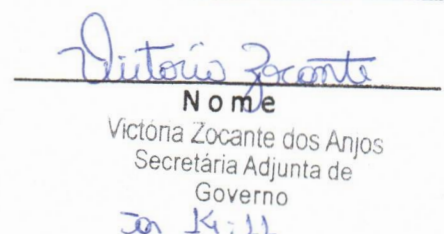 Victoria Zocante
Nome
Victória Zocante dos Anjos
Secretária Adjunta de
Governo
14:11